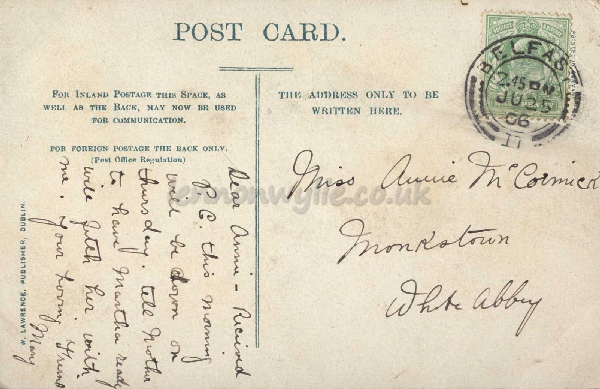 POST CARD.
FOR INLAND POSTAGE THIS SPACE, AS
WELL AS THE BACK, MAY NOW BE USED
FOR COMMUNICATION.
FOR FOREIGN POSTAGE THE BACK ONLY.
(Post Office Regulation)
THE ADDRESS ONLY TO BE
WRITTEN HERE.
BELFAS
2.45 PM
JU 25
06
11
Miss Annie McCormick
Monkstown
White Abbey
Dear Annie - Recieved
P. C. this morning
will be down on
thursday. tell Mother
to have Martha ready
will fetch her with
me. your loving friend
Mary
W. LAWRENCE, PUBLISHER, DUBLIN.
lennonwylie.co.uk